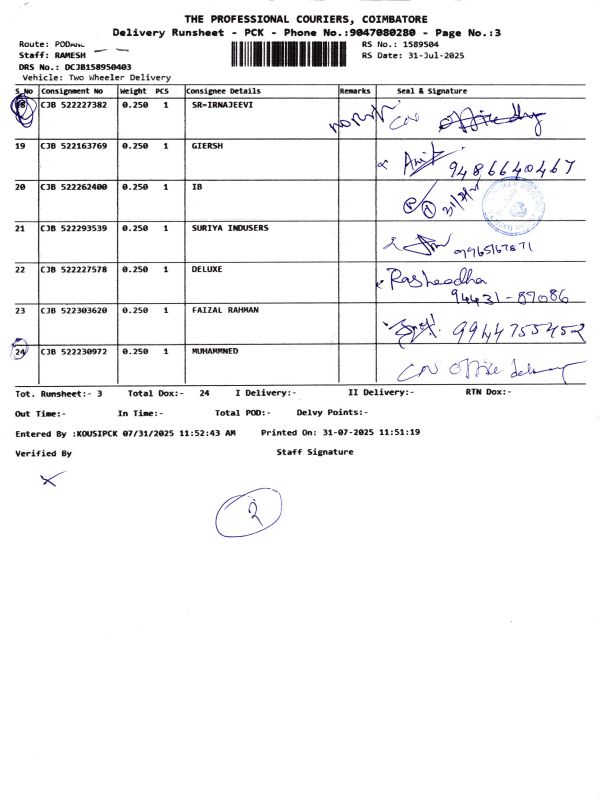 THE PROFESSIONAL COURIERS, COIMBATORE
Delivery Runsheet - PCK - Phone No.:9047080280 - Page No.:3
Route:
Staff: RAMESH
DRS No.: DCJB158950403
Vehicle: Two Wheeler Delivery
RS No.: 1589504
RS Date: 31-Jul-2025
S.No Consignment No Weight PCS Consignee Details Remarks Seal & Signature
18 CJB 522227382 0.250 1 SR-IRNAJEEVI
19 CJB 522163769 0.250 1 GIERSH
9486640467
20 CJB 522262400 0.250 1 IB
21 CJB 522293539 0.250 1 SURIYA INDUSERS
22 CJB 522227578 0.250 1 DELUXE Rasheedha
94431-87086
23 CJB 522303620 0.250 1 FAIZAL RAHMAN 9944755452
24 CJB 522230972 0.250 1 MUHAMMNED
Office
Tot. Runsheet:- 3 Total Dox:- 24 I Delivery:- II Delivery:- RTN Dox:-
Out Time:- In Time:- Total POD:- Delvy Points:-
Entered By :KOUSIPCK 07/31/2025 11:52:43 AM Printed On: 31-07-2025 11:51:19
Verified By Staff Signature